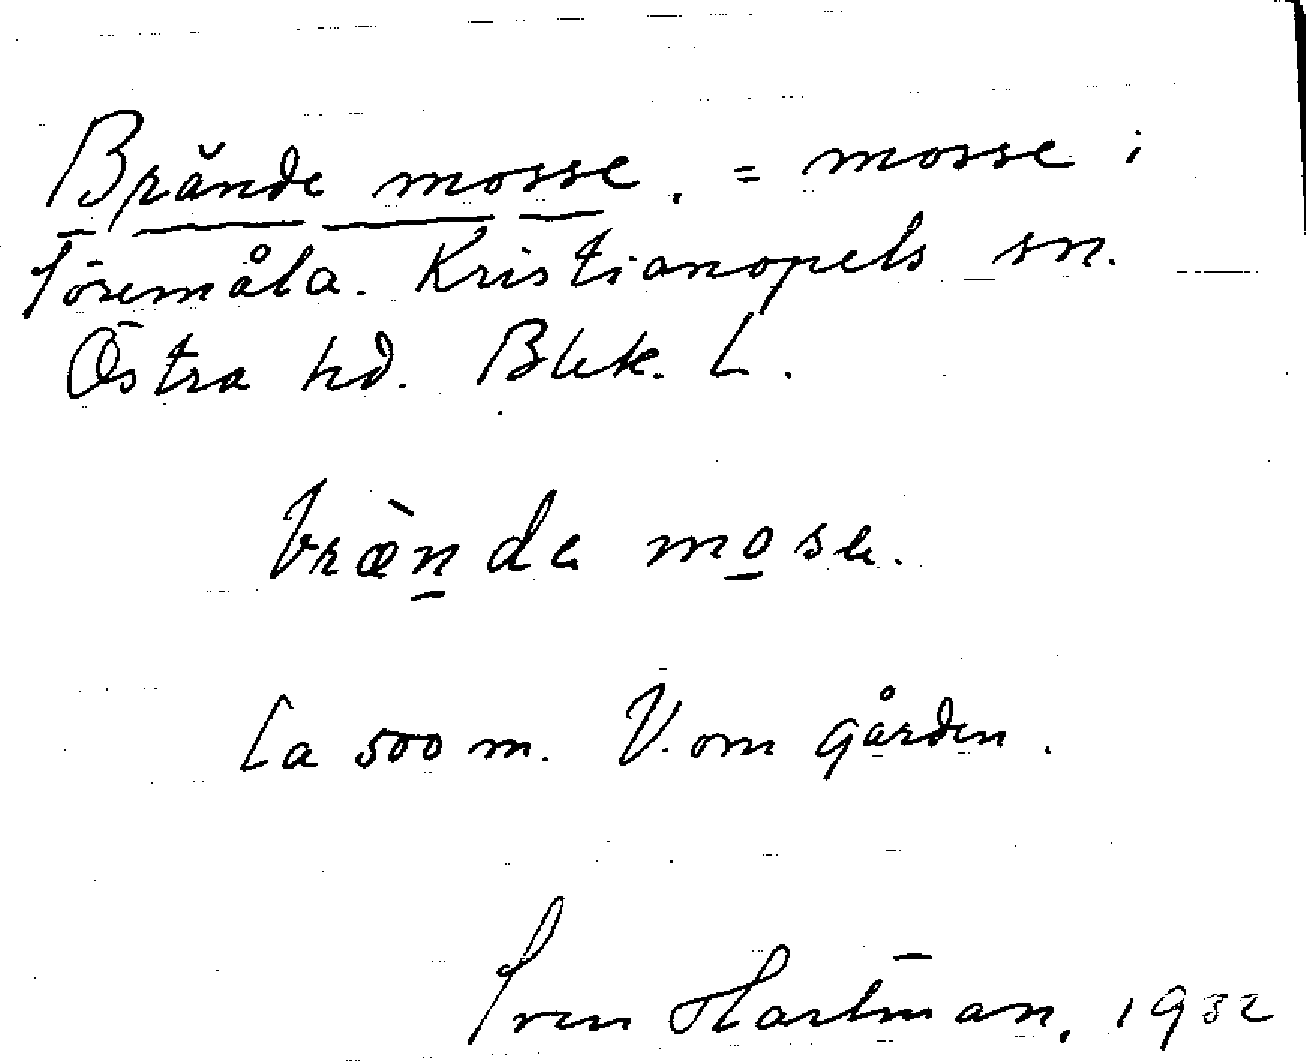 Brände mosse. = mosse i
Töremåla. Kristianopels sn.
Östra hd. Blek. L.
bræ̀n̲de mo̲se.
Ca 500 m. V. om gården.
Sven Hartman, 1932